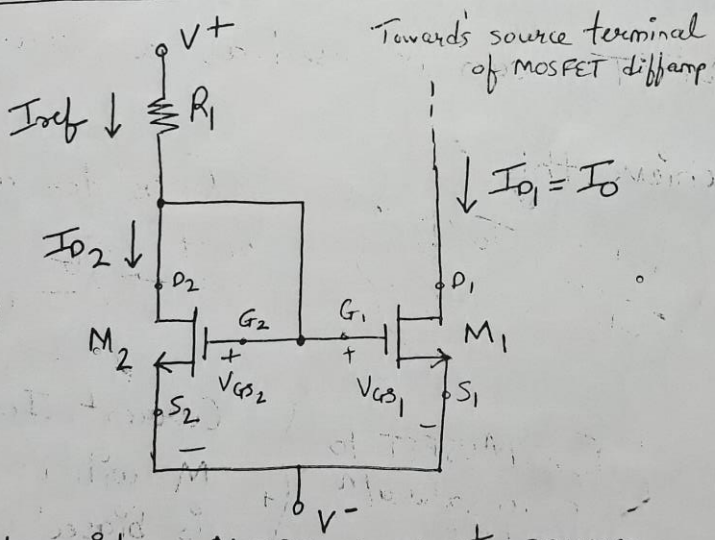 V+
Towards source terminal
of MOSFET diffamp
Iref ↓
R1
↓ ID1 = IO
ID2 ↓
D2
D1
G2
G1
M2
M1
+
+
VGS2
VGS1
S2
S1
−
−
V-